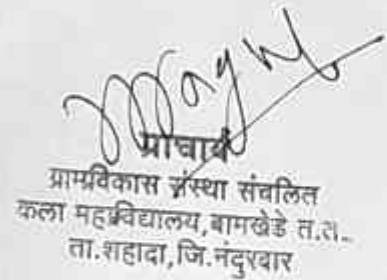 प्राचार्य
ग्रामविकास संस्था संचलित
कला महाविद्यालय, बामखेडे त.त.
ता.शहादा,जि.नंदुरबार